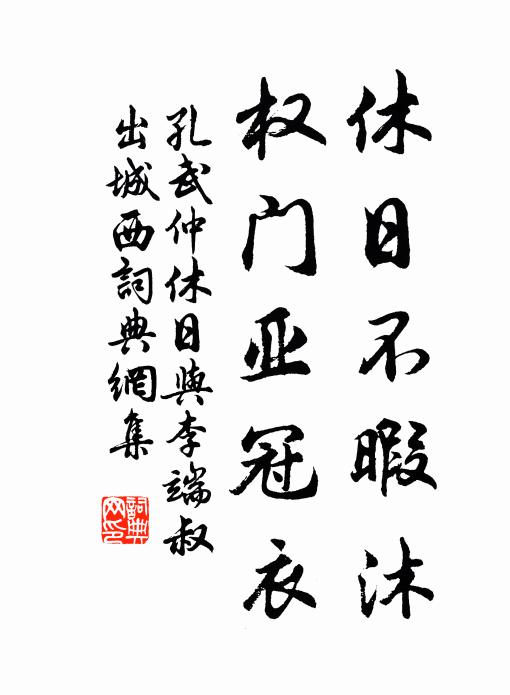 休日不暇沐
权门亚冠衣
孔武仲休日與李端叔
出城西詞典網集
詞典网印